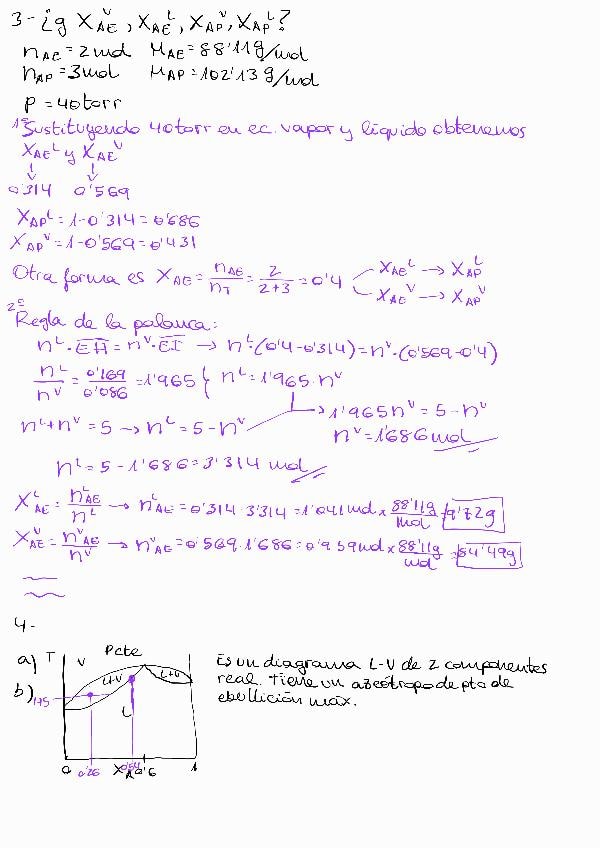 3- ¿g X_AE^V, X_AE^L, X_AP^V, X_AP^L?
n_AE = 2 mol    M_AE = 88'11 g/mol
n_AP = 3 mol    M_AP = 102'13 g/mol
P = 40 torr
1º Sustituyendo 40 torr en ec. vapor y líquido obtenemos
X_AE^L y X_AE^V
↓ ↓
0'314 0'569
X_AP^L = 1-0'314 = 0'686
X_AP^V = 1-0'569 = 0'431
Otra forma es X_AE = n_AE/n_T = 2/(2+3) = 0'4
X_AE^L → X_AP^L
X_AE^V → X_AP^V
2º Regla de la palanca:
n^L · EH = n^V · EI → n^L·(0'4-0'314) = n^V·(0'569-0'4)
n^L/n^V = 0'169/0'086 = 1'965 { n^L = 1'965 · n^V
n^L + n^V = 5 → n^L = 5 - n^V
→ 1'965 n^V = 5 - n^V
n^V = 1'686 mol
n^L = 5 - 1'686 = 3'314 mol
X_AE^L = n_AE^L/n^L → n_AE^L = 0'314 · 3'314 = 1'041 mol × 88'11g/mol = 9'72g
X_AE^V = n_AE^V/n^V → n_AE^V = 0'569 · 1'686 = 0'959 mol × 88'11g/mol = 84'49g
4-
a) T V P cte
L+V L+V
b) L
0 0'26 X_A 0'54 0'6 1
Es un diagrama L-V de 2 componentes
real. Tiene un azeótropo de pto de
ebullición máx.